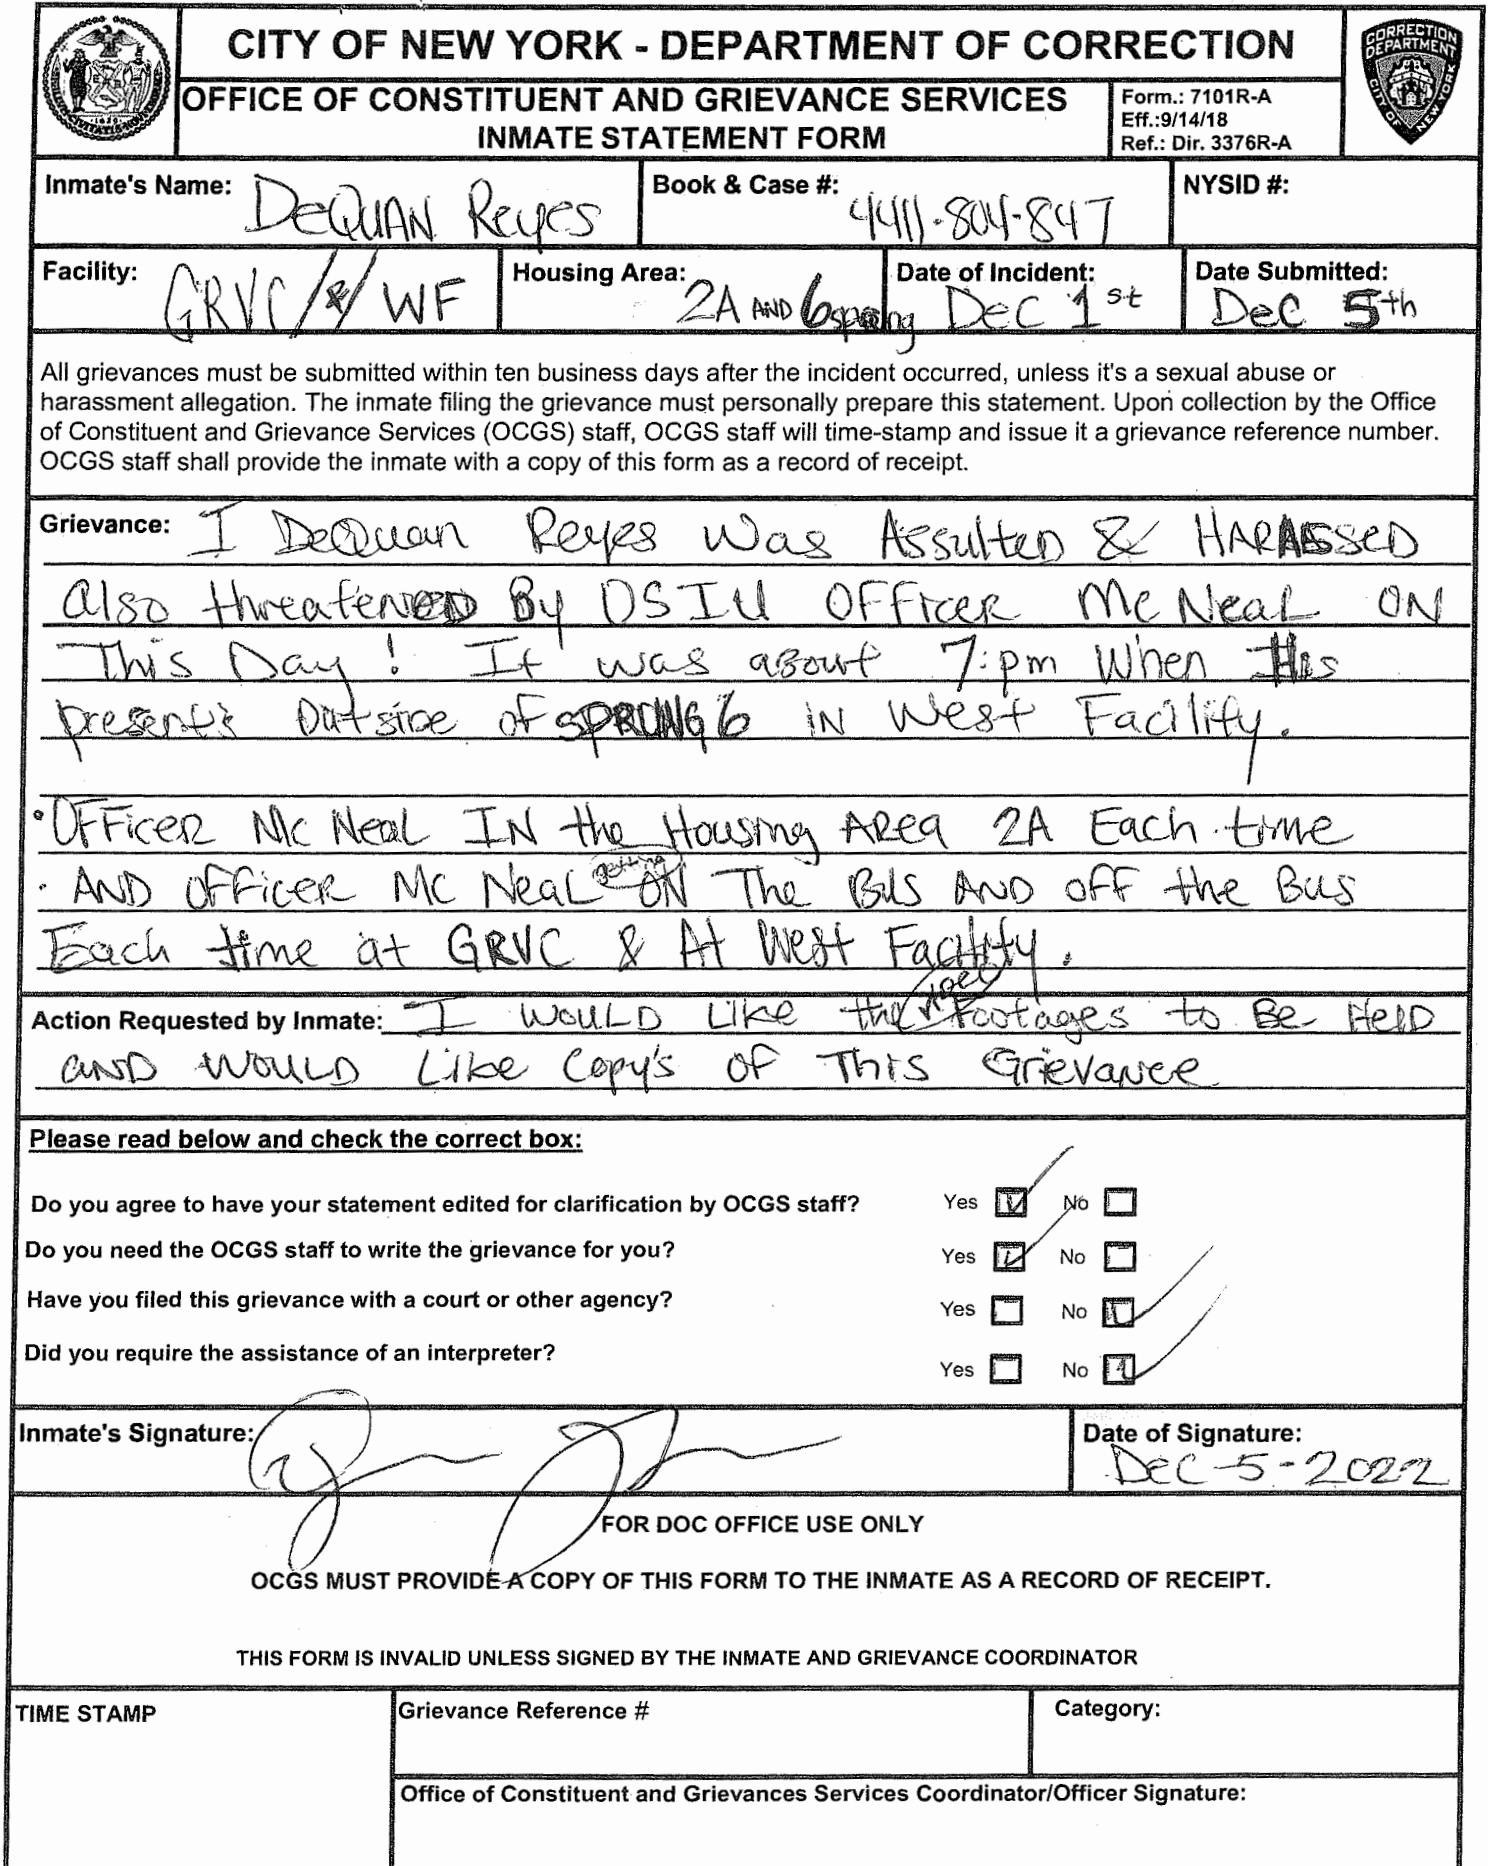 CITY OF NEW YORK - DEPARTMENT OF CORRECTION
OFFICE OF CONSTITUENT AND GRIEVANCE SERVICES
INMATE STATEMENT FORM
Form.: 7101R-A
Eff.:9/14/18
Ref.: Dir. 3376R-A
CORRECTION DEPARTMENT CITY OF NEW YORK
Inmate's Name: DeQUAN Reyes
Book & Case #: 4411-804-847
NYSID #:
Facility: GRVC/&/WF
Housing Area: 2A AND 6 spring
Date of Incident: Dec 1st
Date Submitted: Dec 5th
All grievances must be submitted within ten business days after the incident occurred, unless it's a sexual abuse or
harassment allegation. The inmate filing the grievance must personally prepare this statement. Upon collection by the Office
of Constituent and Grievance Services (OCGS) staff, OCGS staff will time-stamp and issue it a grievance reference number.
OCGS staff shall provide the inmate with a copy of this form as a record of receipt.
Grievance: I DeQuan Reyes Was Assulted & HARASSED
also threatened By DSIU OFFicer Mc Neal ON
This Day! It was about 7:pm When
present's Outside of SPRUNG 6 in West Facility.
• OFFicer Mc Neal IN the Housing Area 2A Each time
• AND officer Mc Neal getting ON The Bus AND off the Bus
Each time at GRVC & At West Facility.
Action Requested by Inmate: I WOULD Like the video Footages to Be Held
and WOULD Like Copy's of This Grievance
Please read below and check the correct box:
Do you agree to have your statement edited for clarification by OCGS staff? Yes No
Do you need the OCGS staff to write the grievance for you? Yes No
Have you filed this grievance with a court or other agency? Yes No
Did you require the assistance of an interpreter? Yes No
Inmate's Signature:
Date of Signature: Dec-5-2022
FOR DOC OFFICE USE ONLY
OCGS MUST PROVIDE A COPY OF THIS FORM TO THE INMATE AS A RECORD OF RECEIPT.
THIS FORM IS INVALID UNLESS SIGNED BY THE INMATE AND GRIEVANCE COORDINATOR
TIME STAMP
Grievance Reference #
Category:
Office of Constituent and Grievances Services Coordinator/Officer Signature: